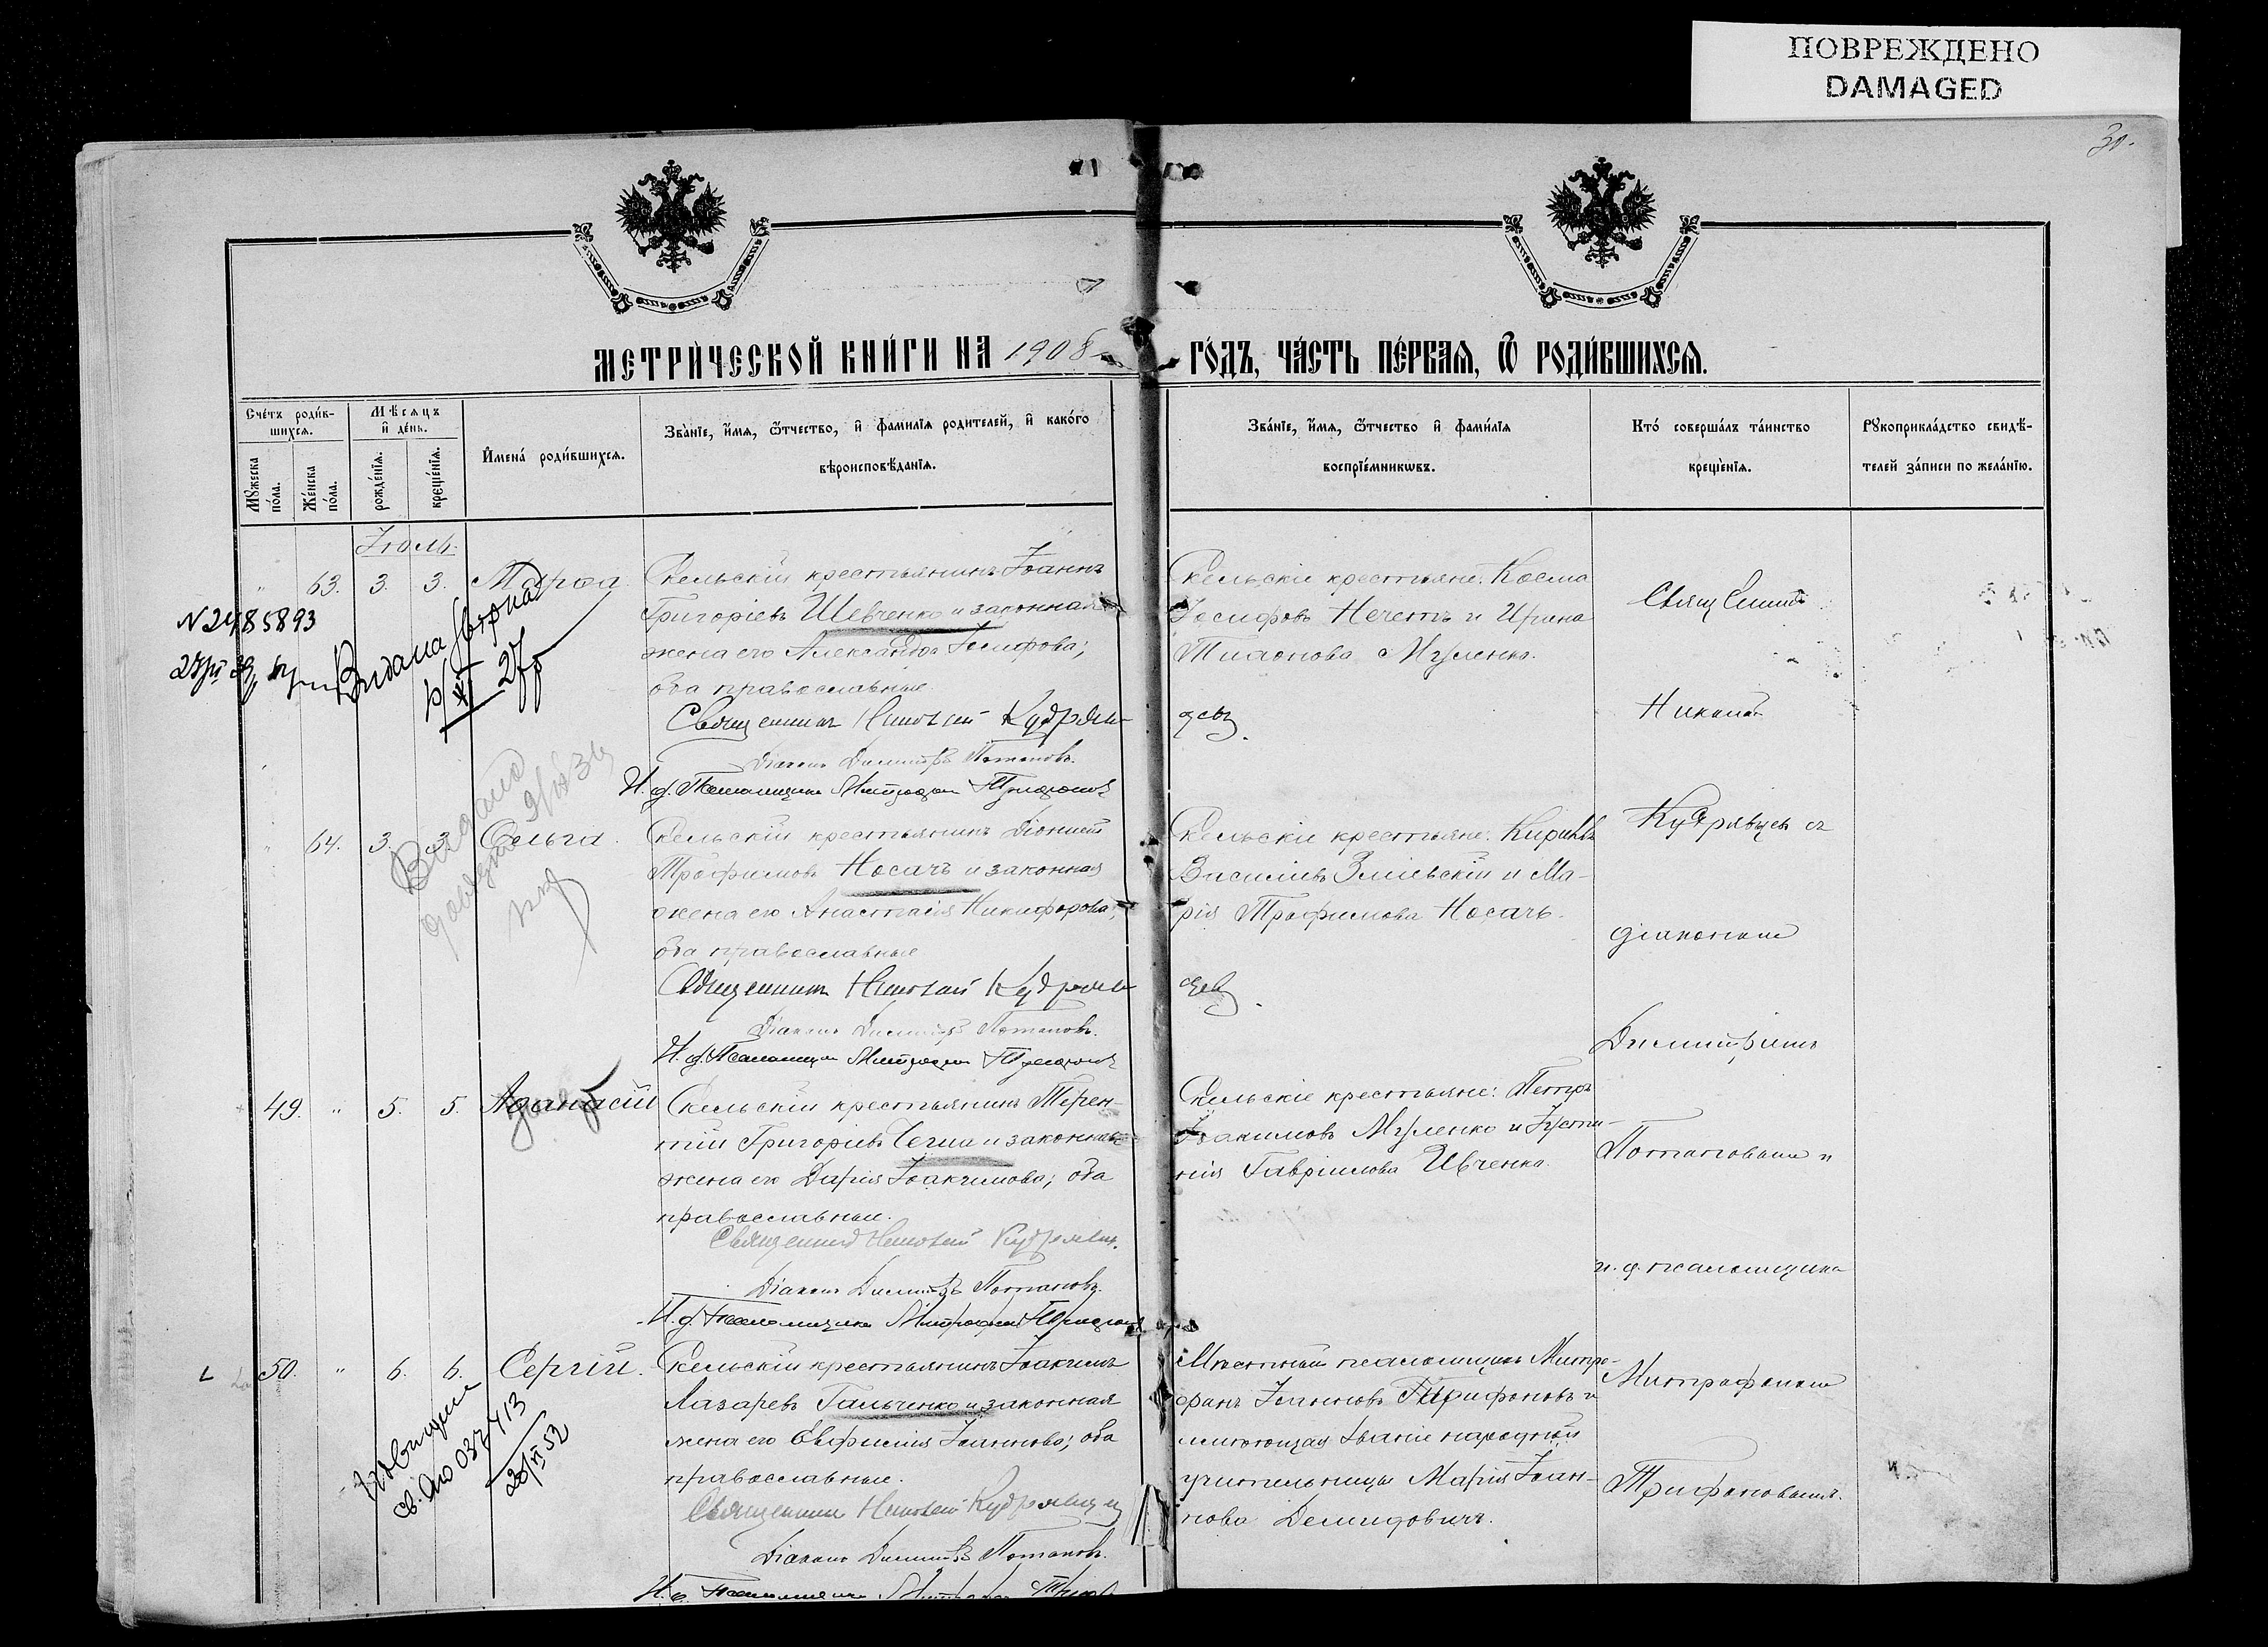 ПОВРЕЖДЕНО
DAMAGED
30.
МЕТРИЧЕСКОЙ КНИГИ НА 1908
ГОДЪ, ЧАСТЬ ПЕРВАЯ, Ѿ РОДИВШИХСЯ.
Счетъ родив-
шихся.
Мѣсяцъ
и день.
Мужеска
пола.
Женска
пола.
рожденія.
крещенія.
Имена родившихся.
Званіе, имя, ѿтчество, и фамилія родителей, и какого
вѣроисповѣданія.
Званіе, имя, ѿтчество и фамилія
воспріемникѡвъ.
Кто совершалъ таинство
крещенія.
Рукоприкладство свидѣ-
телей записи по желанію.
Іюль.
" 63. 3. 3. Марѳа
Скельскій крестьянинъ Іоаннъ
Григоріевъ Шевченко и законная
жена его Александра Іосифова;
оба православные.
Священникъ Николай Кудряв-
цевъ.
Діаконъ Димитрій Потаповъ.
И. д. Псаломщика Митрофанъ Трифоновъ
Скельскіе крестьяне: Косма
Іосифовъ Нечетъ и Ирина
Тихонова Муленко.
N 2485893
Видана
27
" 64. 3. 3. Ольга.
Скельскій крестьянинъ Діонисій
Трофимовъ Носачъ и законная
жена его Анастасія Никифорова;
оба православные
Священникъ Николай Кудряв-
цевъ.
Діаконъ Димитрій Потаповъ.
И. д. Псаломщика Митрофанъ Трифоновъ
Скельскіе крестьяне: Кириллъ
Васильевъ Зміевскій и Ма-
рія Трофимова Носачъ.
Видано
49. " 5. 5. Аѳанасій
Скельскій крестьянинъ Терен-
тій Григоріевъ Чегиль и законная
жена его Дарія Іоакимова; оба
православные.
Священникъ Николай Кудрявцев.
Діаконъ Димитрій Потаповъ.
И. д. Псаломщика Митрофанъ Трифоновъ
Скельскіе крестьяне: Петръ
Іоакимовъ Муленко и Іусти-
нія Гавріилова Ивченко.
50. " 6. 6. Сергій.
Скельскій крестьянинъ Іоакимъ
Лазаревъ Гальченко и законная
жена его Евфимія Іоаннова; оба
православные.
Священникъ Николай Кудрявцевъ
Діаконъ Димитрій Потаповъ.
И. д. Псаломщика Митрофанъ Трифоновъ
Мѣстный псаломщикъ Митро-
фанъ Іоанновъ Трифоновъ и
имеющая званіе народной
учительницы Марія Іоан-
нова Демидовичъ.
037413
52
Свящ
Николай
Кудрявцевъ съ
діакономъ
Димитріемъ
Потаповымъ и
и. д. псаломщика
Митрофаномъ
Трифоновымъ.